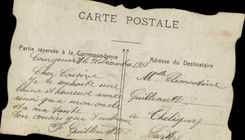 CARTE POSTALE
Partie réservée à la Correspondance
Adresse du Destinataire
31 décembre
Cher Cousine
Je te souhaite une
bonne et heureuse année
ainsi qu'a mon oncle
et ma tante
Ton cousin que t'embrasse
J. Guillemette
Melle Clementine
Guillemette
à Chevigny
Sarthe